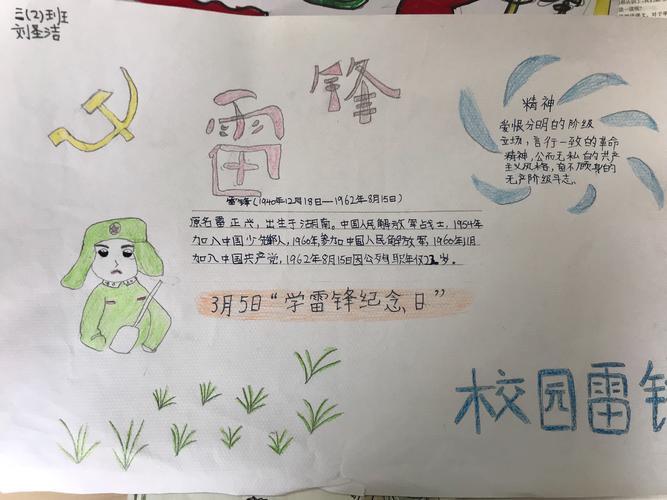 三(2)班
刘圣洁
雷锋
雷锋(1940年12月18日—1962年8月15日)
原名雷正兴,出生于湖南。中国人民解放军战士,1954年
加入中国少先队,1960年参加中国人民解放军,1960年11月
加入中国共产党,1962年8月15日因公殉职年仅22岁。
3月5日“学雷锋纪念日”
精神
爱恨分明的阶级
立场,言行一致的革命
精神,公而无私的共产
主义风格,奋不顾身的
无产阶级斗志。
校园雷锋